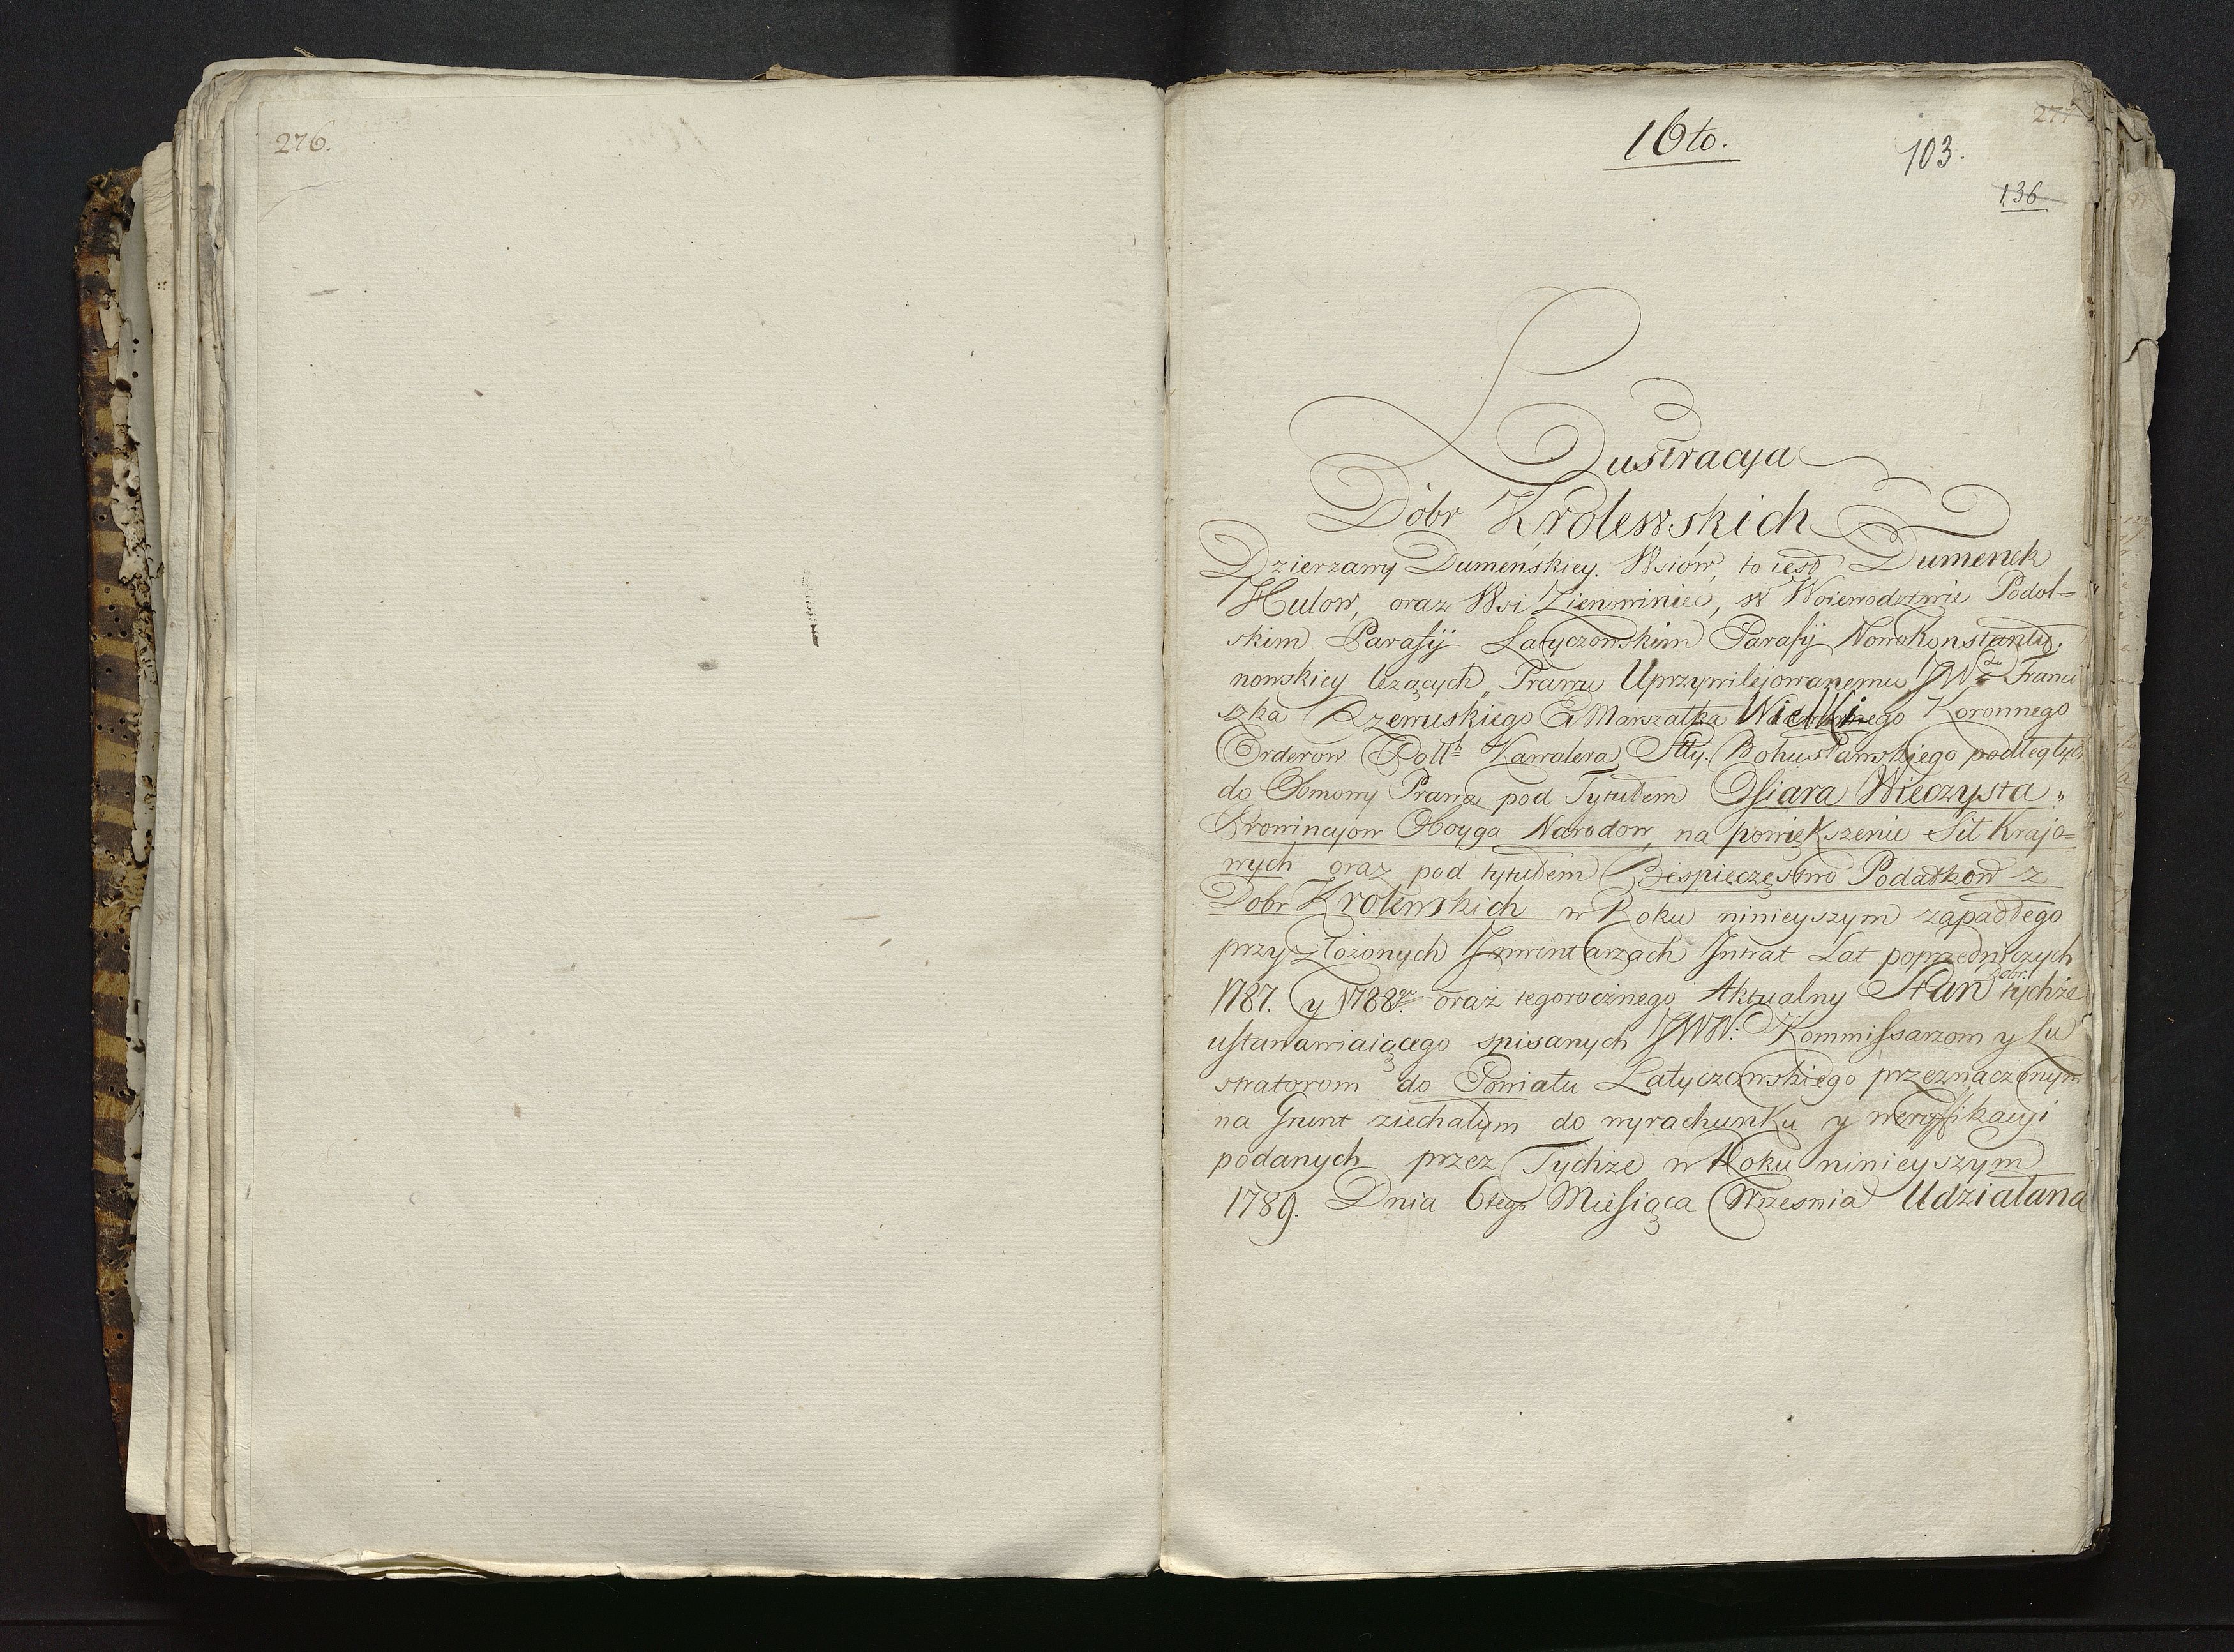 276.
277
16to.
103.
136
Lustracya
Dobr Krolewskich
Dzierzawy Dumeńskiey. Wsiów, to iest Dumenek
Hulow, oraz Wsi Zienowiniec, w Woiewodztwie Podol=
skim Parafij Latyczowskim Parafij NowoKonstanty,
nowskiey leżących, Prawu Uprzywilejowanemu JW Franci
szka Rzewuskiego Ex Marszałka Koronnego
Orderow Poll Kawalera Stty. Bohusławskiego podległych
do Osnowy Prawa pod Tytułem Ofiara Wieczysta „
Prowincyow Oboyga Narodow, na powiększenie Sił Krajo=
wych oraz pod tytułem Bespieczęstwo Podatkow z
Dobr Krolewskich w Roku ninieyszym zapadłego
przy złożonych Inwentarzach Intrat Lat poprzedniczych
1787. y 1788go. oraz tegorocżnego Aktualny Stan dobr. tychże
ustanawiaiącego spisanych JWW: Kommissarzom y Lu
stratorom do Powiatu Latyczowskiego przeznaczonym
na Grunt ziechałym do wyrachunku y weryffikacyi
podanych przez Tychże w Roku ninieyszym
1789. Dnia 6tego Miesiąca Wrzesnia Udziałana